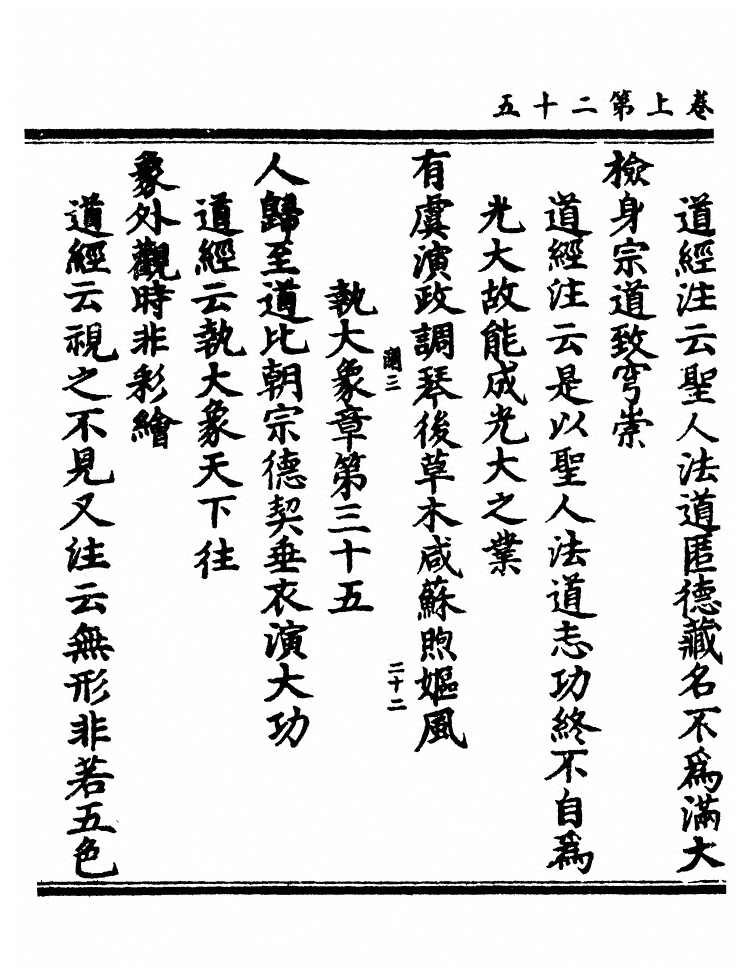 卷上第二十五
道經注云聖人法道匿德藏名不爲滿大
檢身宗道致穹崇
道經注云是以聖人法道志功終不自爲
光大故能成光大之業
有虞演政調琴後草木咸蘇煦嫗風
三
二十二
執大象章第三十五
人歸至道比朝宗德契垂衣演大功
道經云執大象天下往
象外觀時非彩繪
道經云視之不見又注云無形非若五色